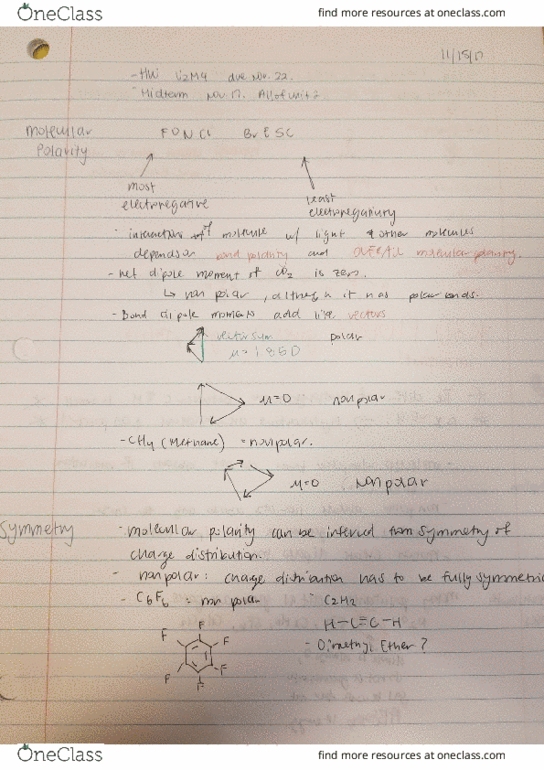 OneClass
find more resources at oneclass.com
11/15/17
- HW U2M4 due Nov. 22.
- Midterm Nov. 17. All of unit 2
Molecular Polarity
F O N Cl Br I S C
most electronegative
least
- interactions of molecule w/ light + other molecules
depends on bond polarity and OVERALL molecular polarity.
- net dipole moment of CO2 is zero.
↳ non polar, although it has polar bonds.
- Bond dipole moments add like vectors
vector sum polar
μ = 1.85 D
μ=0 nonpolar
- CH4 (Methane) = nonpolar.
μ=0 Nonpolar
Symmetry
- molecular polarity can be inferred from symmetry of
charge distribution.
- nonpolar: charge distribution has to be fully symmetric
- C6F6 = non polar C2H2
H-C≡C-H
- Dimethyl Ether?
F
F
F
F
F
F
OneClass
find more resources at oneclass.com